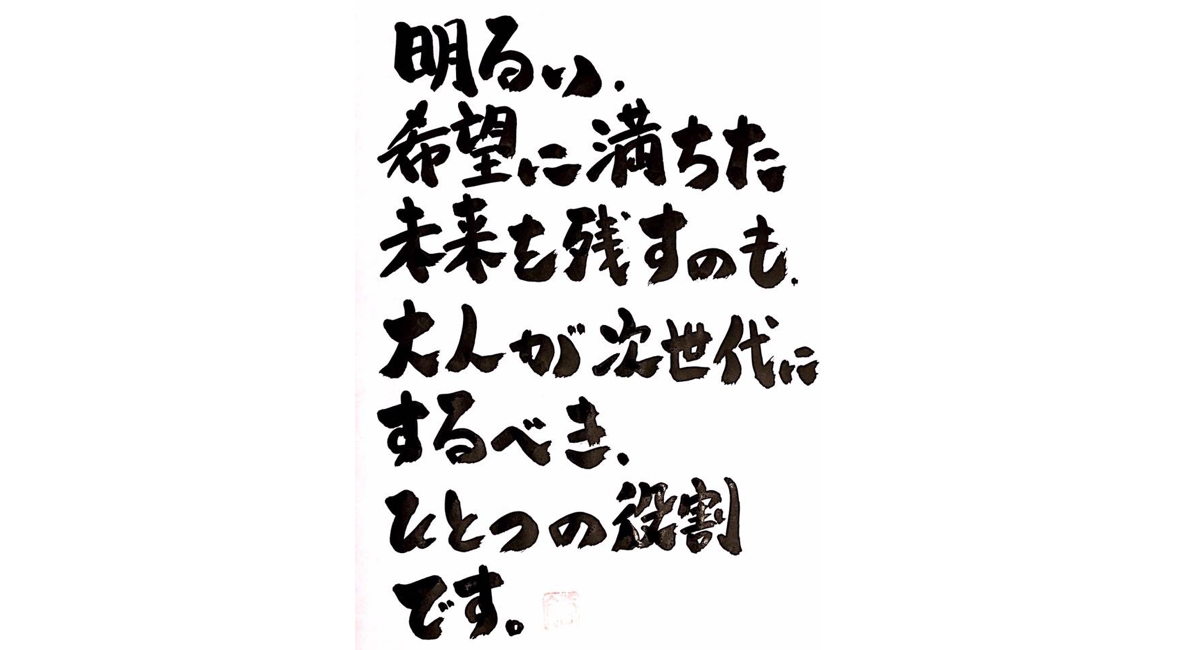 明るい、
希望に満ちた
未来を残すのも、
大人が次世代に
するべき、
ひとつの役割
です。